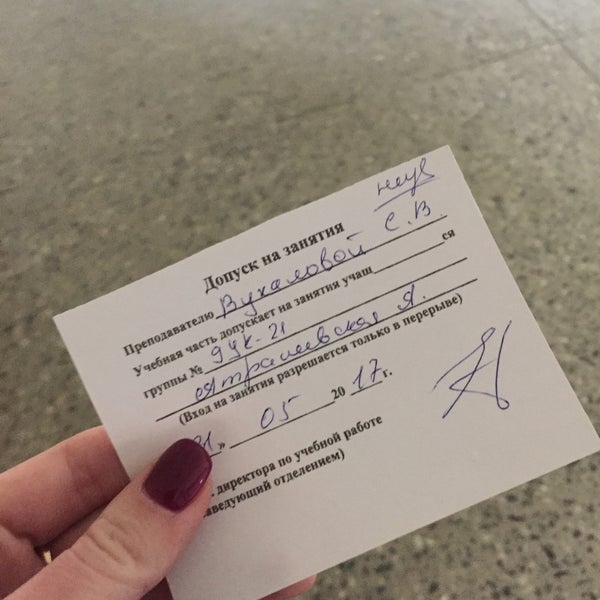 неув
Допуск на занятия
Преподавателю Вухаловой С.В
Учебная часть допускает на занятия учащ ся
группы № 9ук-21
А.
(Вход на занятия разрешается только в перерыве)
» 05 2017 г.
директора по учебной работе
аведующий отделением)